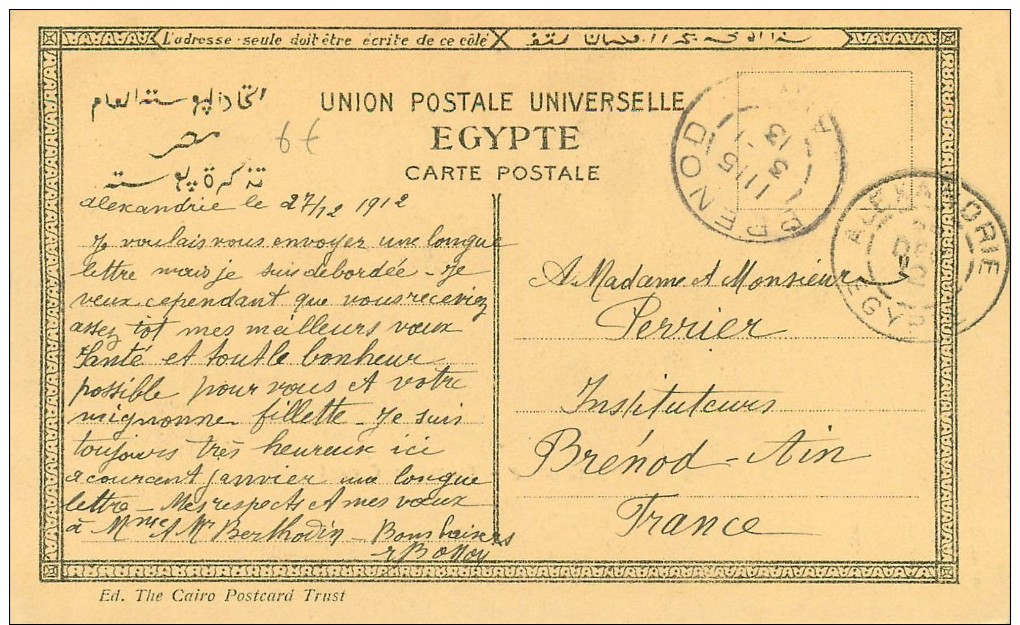 L'adresse seule doit être écrite de ce côté
اتحاد البوسته العام
مصر
تذكرة بوسته
6€
UNION POSTALE UNIVERSELLE
EGYPTE
CARTE POSTALE
BRENOD
11 15
3 - 1
13
ALEXANDRIE
DEC
EGYPT
Alexandrie le 27/12 1912
Je voulais vous envoyer une longue
lettre mais je suis debordée - Je
veux cependant que vous receviez
assez tot mes meilleurs vœux
Santé et tout le bonheur
possible pour vous et votre
mignonne fillette - Je suis
toujours très heureux ici
a courant janvier une longue
lettre - Mes respects et mes vœux
à Mme & Mr Berthodin - Bons baisers
A Madame et Monsieur
Perrier
Instituteurs
Brénod - Ain
France
Ed. The Cairo Postcard Trust